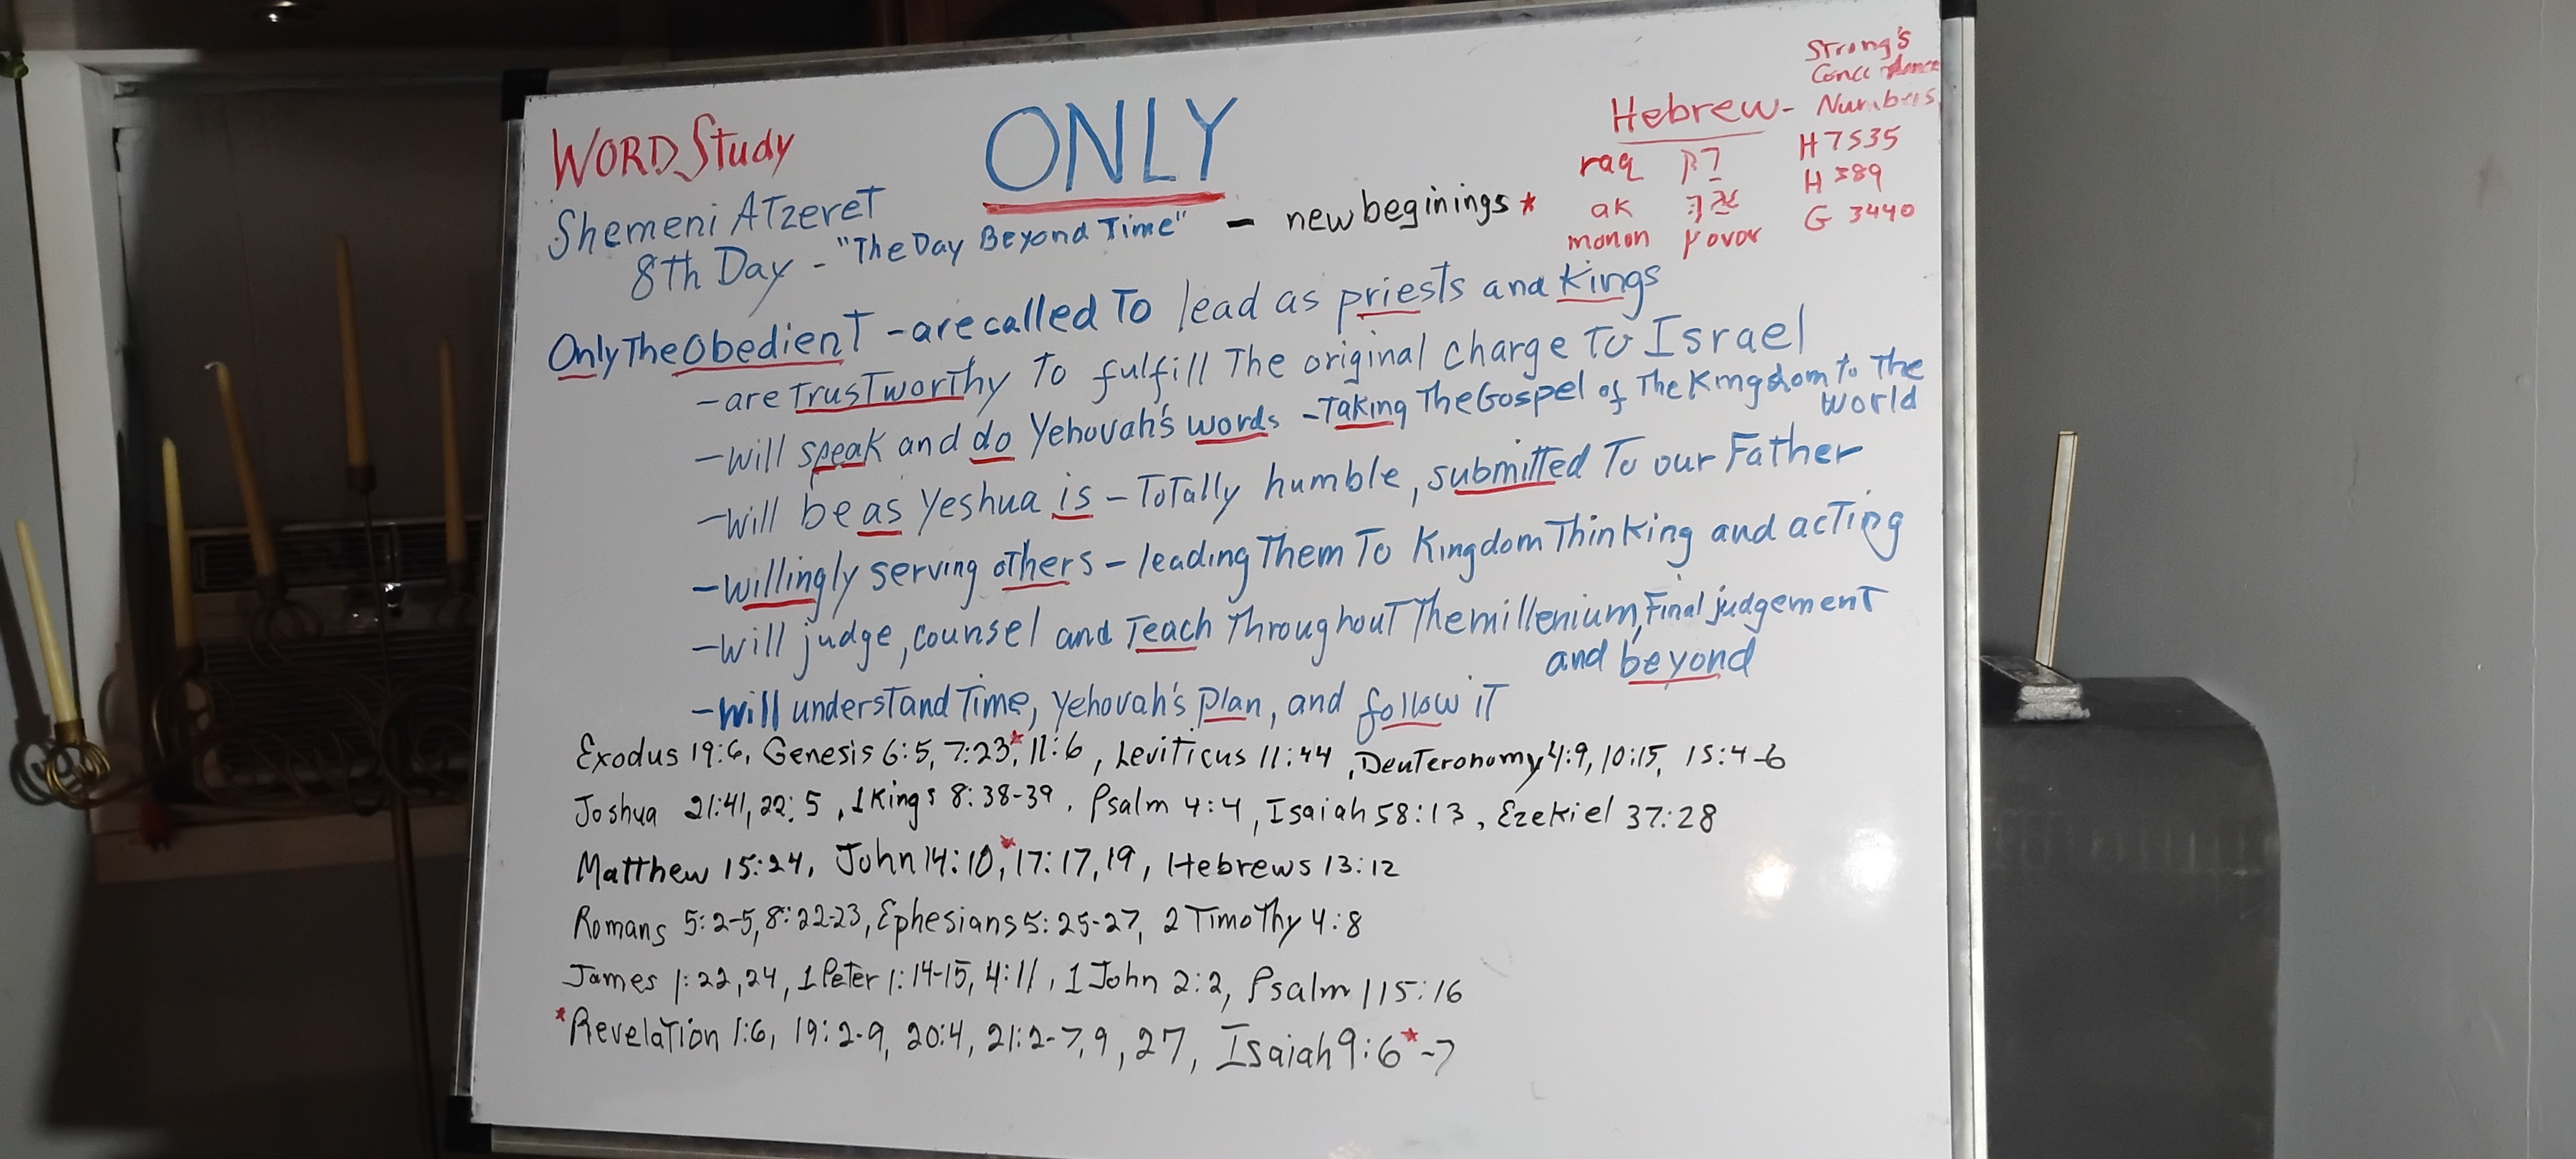 WORD Study
ONLY
Hebrew - Strong's Concordance Numbers
raq רק H7535
ak אך H389
monon μονον G 3440
Shemeni ATzereT
8th Day - "The Day Beyond Time" - new beginings*
Only The ObedienT - are called To lead as priests and Kings
- are TrusTworThy To fulfill The original charge To Israel
- will speak and do Yehovah's words - Taking The Gospel of The Kingdom to The World
- will be as Yeshua is - ToTally humble, submitted To our Father
- willingly serving others - leading Them To Kingdom Thinking and acTing
- will judge, counsel and Teach Throughout The millenium, Final judgement and beyond
- will understand Time, Yehovah's plan, and follow iT
Exodus 19:6, Genesis 6:5, 7:23*, 11:6, LeviTicus 11:44, DeuTeronomy 4:9, 10:15, 15:4-6
Joshua 21:41, 22:5, 1 Kings 8:38-39, Psalm 4:4, Isaiah 58:13, Ezekiel 37:28
Matthew 15:24, John 14:10*, 17:17,19, Hebrews 13:12
Romans 5:2-5, 8:22-23, Ephesians 5:25-27, 2 TimoThy 4:8
James 1:22,24, 1 PeTer 1:14-15, 4:11, 1 John 2:2, Psalm 115:16
*RevelaTion 1:6, 19:2-9, 20:4, 21:2-7,9, 27, Isaiah 9:6*-7